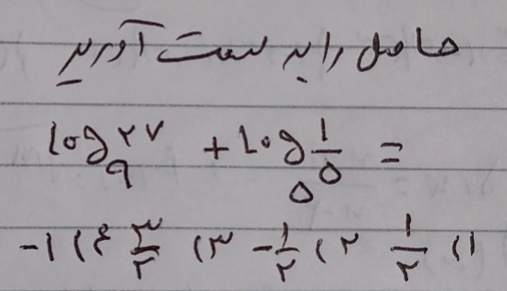 حاصل را به دست آورید
log₉ ۲۷ + log₅ ۱/۵ =
۱) ۱/۲ ۲) -۱/۲ ۳) ۳/۲ ۴) -۱